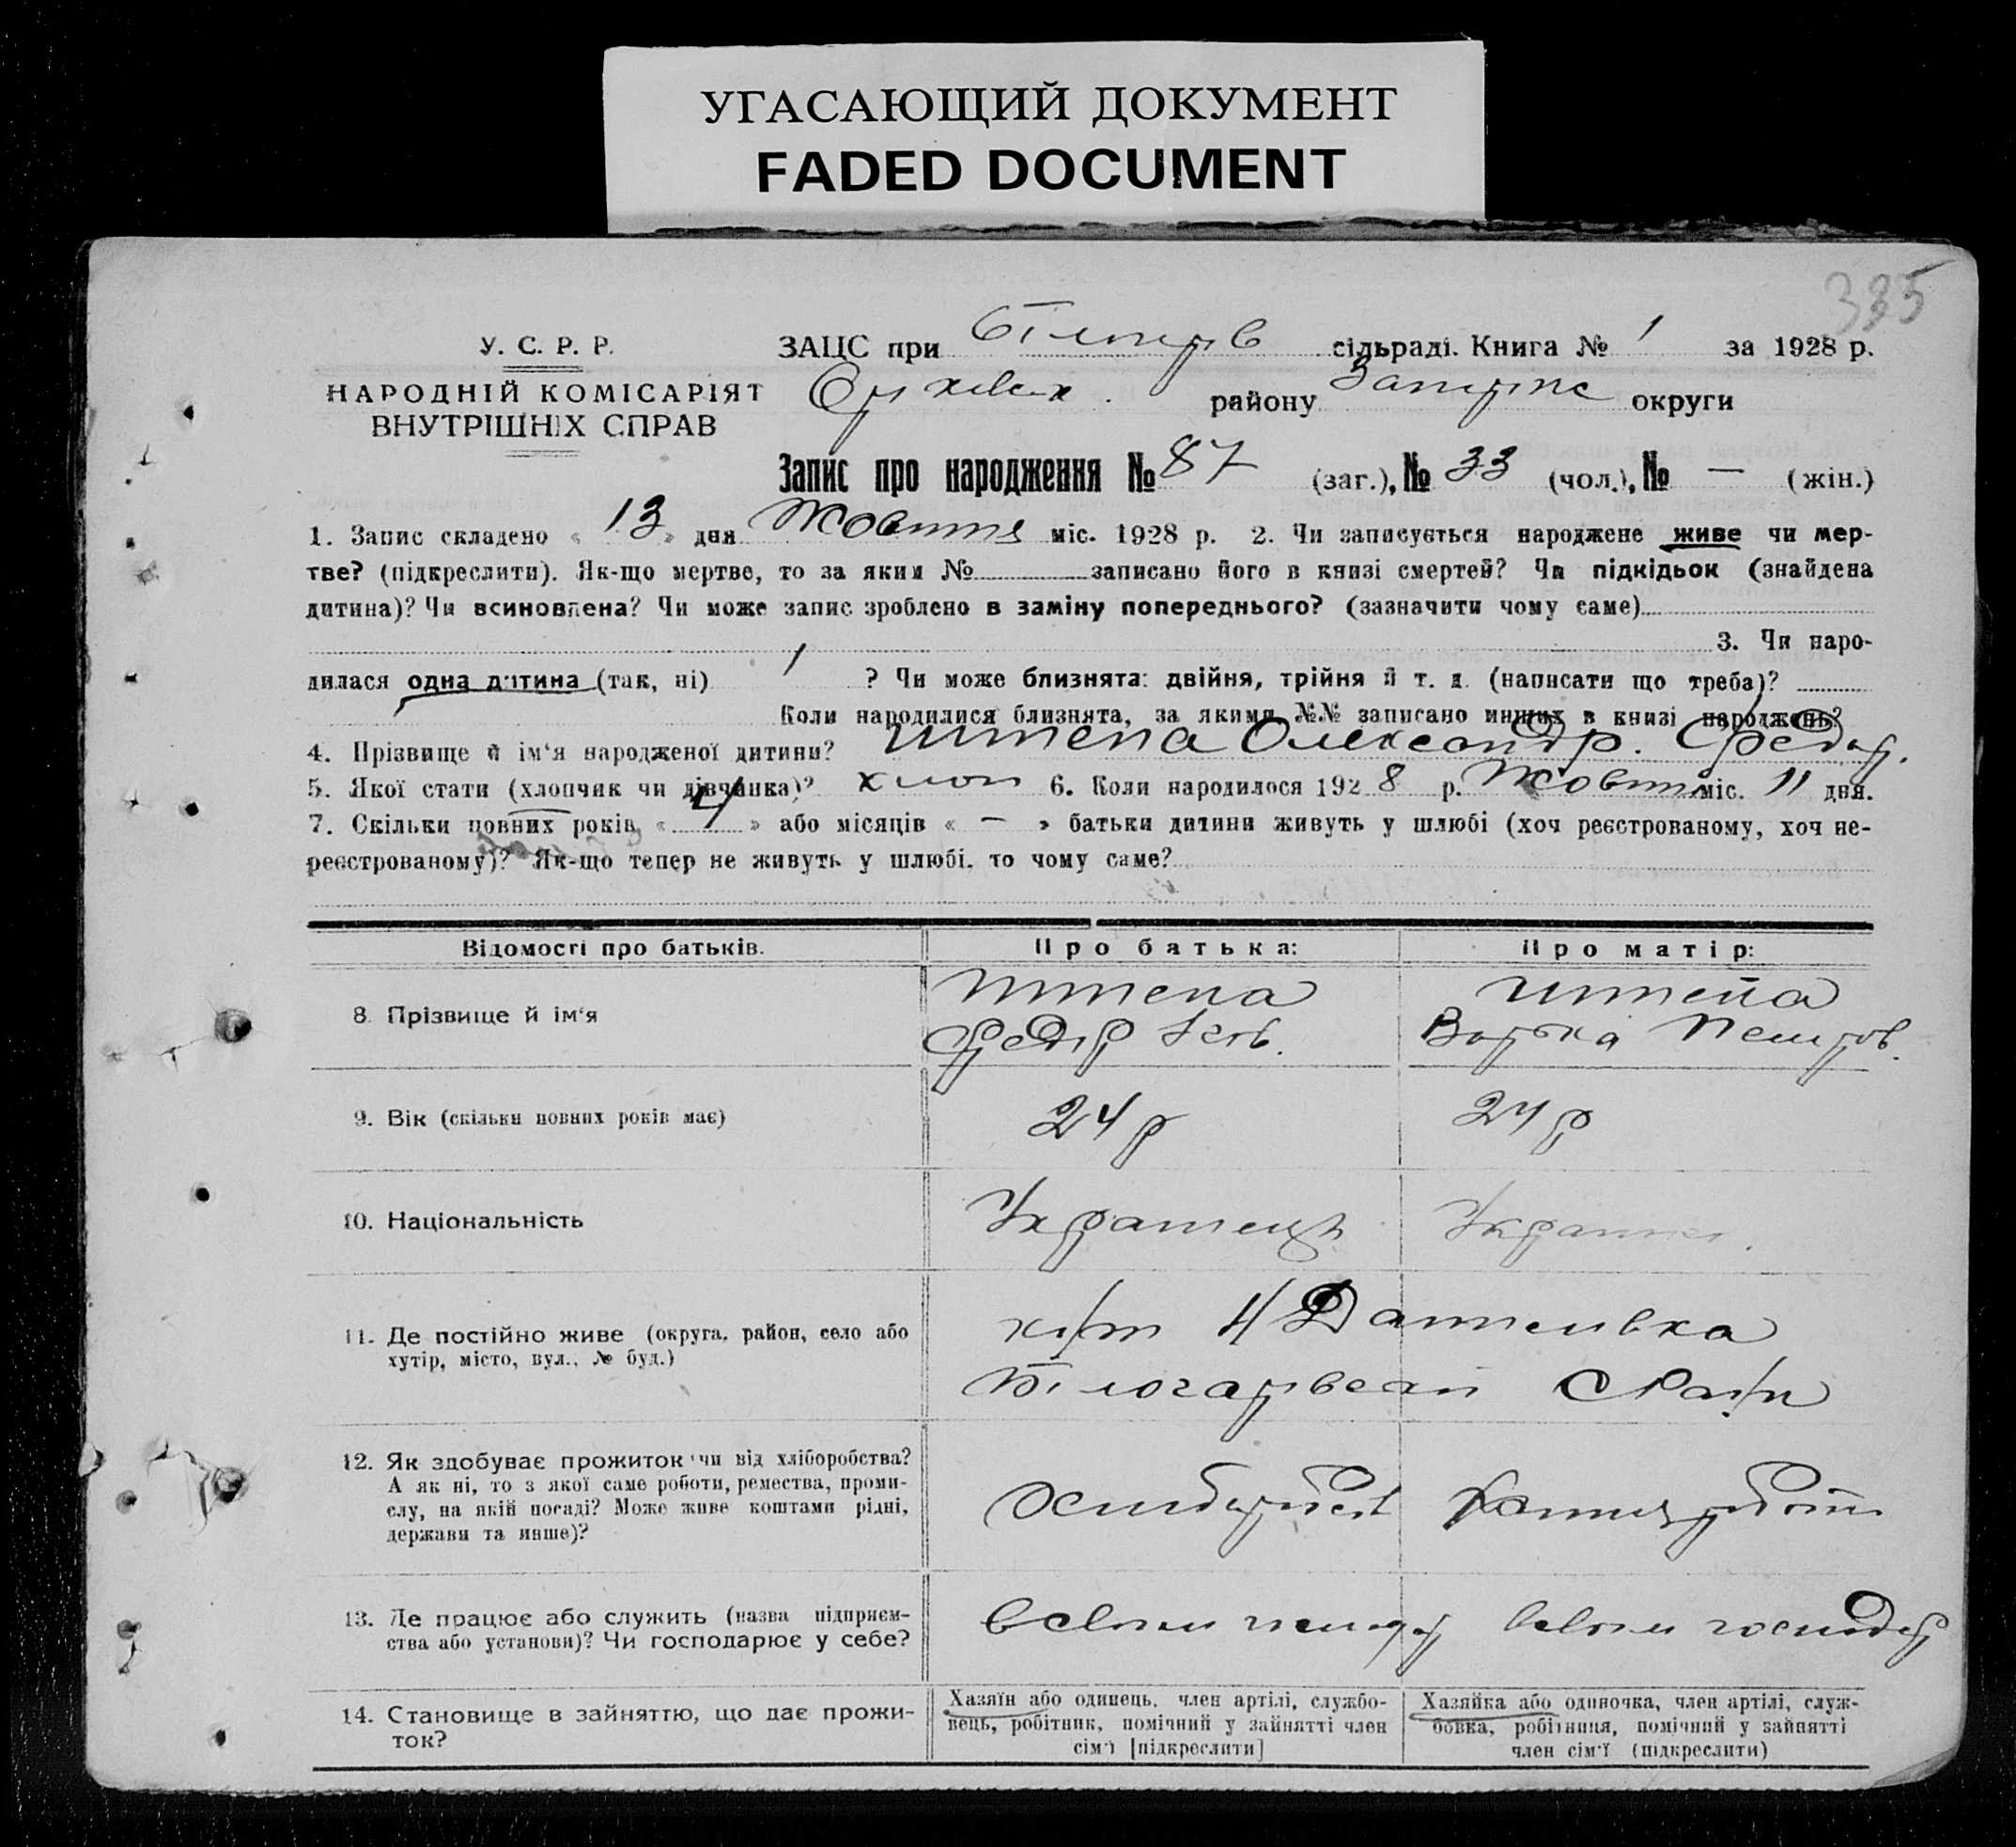 УГАСАЮЩИЙ ДОКУМЕНТ
FADED DOCUMENT
335
У. С. Р. Р.
НАРОДНІЙ КОМІСАРІЯТ
ВНУТРІШНІХ СПРАВ
ЗАЦС при сільраді. Книга № 1 за 1928 р.
району округи
Запис про народження № 87 (заг.), № 33 (чол.), № — (жін.)
1. Запис складено « 13 » дня Жовтня міс. 1928 р. 2. Чи записується народжене живе чи мер-
тве? (підкреслити). Як-що мертве, то за яким № записано його в книзі смертей? Чи підкідьок (знайдена
дитина)? Чи всиновлена? Чи може запис зроблено в заміну попереднього? (зазначити чому саме)
3. Чи наро-
дилася одна дитина (так, ні) 1 ? Чи може близнята: двійня, трійня й т. д. (написати що треба)?
Коли народилися близнята, за якими №№ записано инших в книзі народжень?
4. Прізвище й ім'я народженої дитини? Штепа Олександр. Федор.
5. Якої стати (хлопчик чи дівчинка)? хлоп 6. Коли народилося 1928 р. Жовтня міс. 11 дня.
7. Скільки повних років « 4 » або місяців « — » батьки дитини живуть у шлюбі (хоч реєстрованому, хоч не-
реєстрованому)? Як-що тепер не живуть у шлюбі, то чому саме?
Відомості про батьків.
Про батька:
Про матір:
8. Прізвище й ім'я
Штепа
Федір
Штепа
Варька Петров.
9. Вік (скільки повних років має)
24 р
24 р
10. Національність
Українець
Українк
11. Де постійно живе (округа, район, село або
хутір, місто, вул., № буд.)
12. Як здобуває прожиток чи від хліборобства?
А як ні, то з якої саме роботи, ремества, проми-
слу, на якій посаді? Може живе коштами рідні,
держави та инше)?
13. Де працює або служить (назва підприєм-
ства або установи)? Чи господарює у себе?
в своїм господар
14. Становище в зайняттю, що дає прожи-
ток?
Хазяїн або одинець, член артілі, службо-
вець, робітник, помічний у зайнятті член
сім'ї [підкреслити]
Хазяйка або одиночка, член артілі, служ-
бовка, робітниця, помічний у зайнятті
член сім'ї (підкреслити)